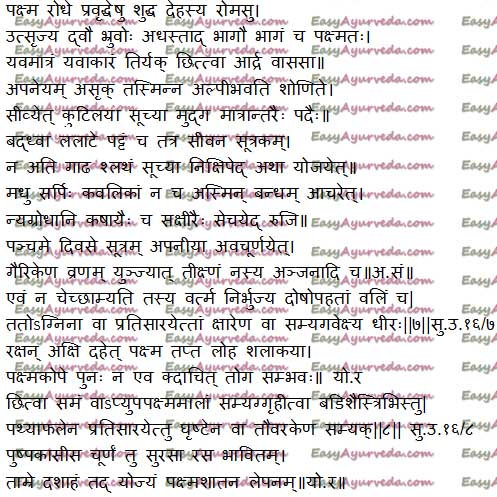 पक्ष्म रोधे प्रवृद्धेषु शुद्ध देहस्य रोमसु।
उत्सृज्य द्वौ भ्रुवोः अधस्ताद् भागौ भागं च पक्ष्मतः।
यवमात्रं यवाकारं तिर्यक् छित्त्वा आर्द्र वाससा॥
अपनेयम् असृक् तस्मिन्न अल्पीभवति शोणिते।
सीव्येत् कुटिलया सूच्या मुद्ग मात्रान्तरैः पदैः॥
बद्ध्वा ललाटे पट्टं च तत्र सीवन सूत्रकम्।
न अति गाढ श्लथं सूच्या निक्षिपेद् अथा योजयेत्॥
मधु सर्पिः कवलिकां न च अस्मिन् बन्धम् आचरेत्।
न्यग्रोधानि कषायैः च सक्षीरैः सेचयेद् रुजि॥
पञ्चमे दिवसे सूत्रम् अपनीया अवचूर्णयेत्।
गैरिकेण व्रणम् युञ्ज्यात् तीक्ष्णं नस्य अञ्जनादि च॥अ.सं॥
एवं न चेच्छाम्यति तस्य वर्त्म निर्भुज्य दोषोपहतां वलिं च|
ततोऽग्निना वा प्रतिसारयेत्तां क्षारेण वा सम्यगवेक्ष्य धीरः||७||सु.उ.१६/७
रक्षन् अक्षि दहेत् पक्ष्म तप्त लोह शलाकया।
पक्ष्मकोपे पुनः न एव कदाचित् तोग सम्भवः॥ यो.र
छित्वा समं वाऽप्युपपक्ष्ममालां सम्यग्गृहीत्वा बडिशैस्त्रिभिस्तु|
पथ्याफलेन प्रतिसारयेत्तु घृष्टेन वा तौवरकेण सम्यक्||८|| सु.उ.१६/८
पुष्पकासीस चूर्णं तु सुरसा रस भावितम्।
तामे दशाहं तद् योज्यं पक्ष्मशातन लेपनम्॥यो.र॥
EasyAyurveda.com